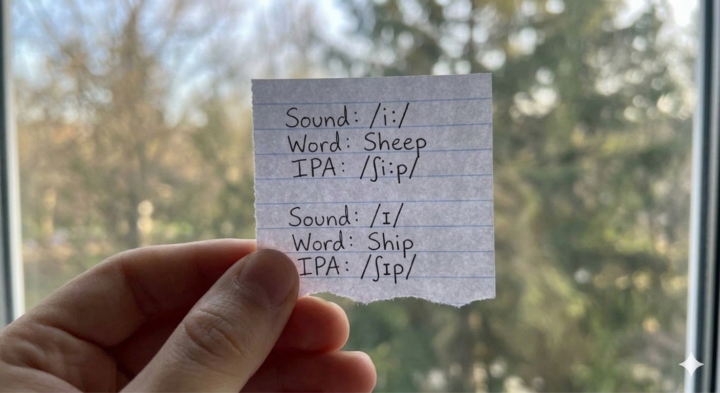 Sound: /i:/
Word: Sheep
IPA: /ʃi:p/
Sound: /ɪ/
Word: Ship
IPA: /ʃɪp/